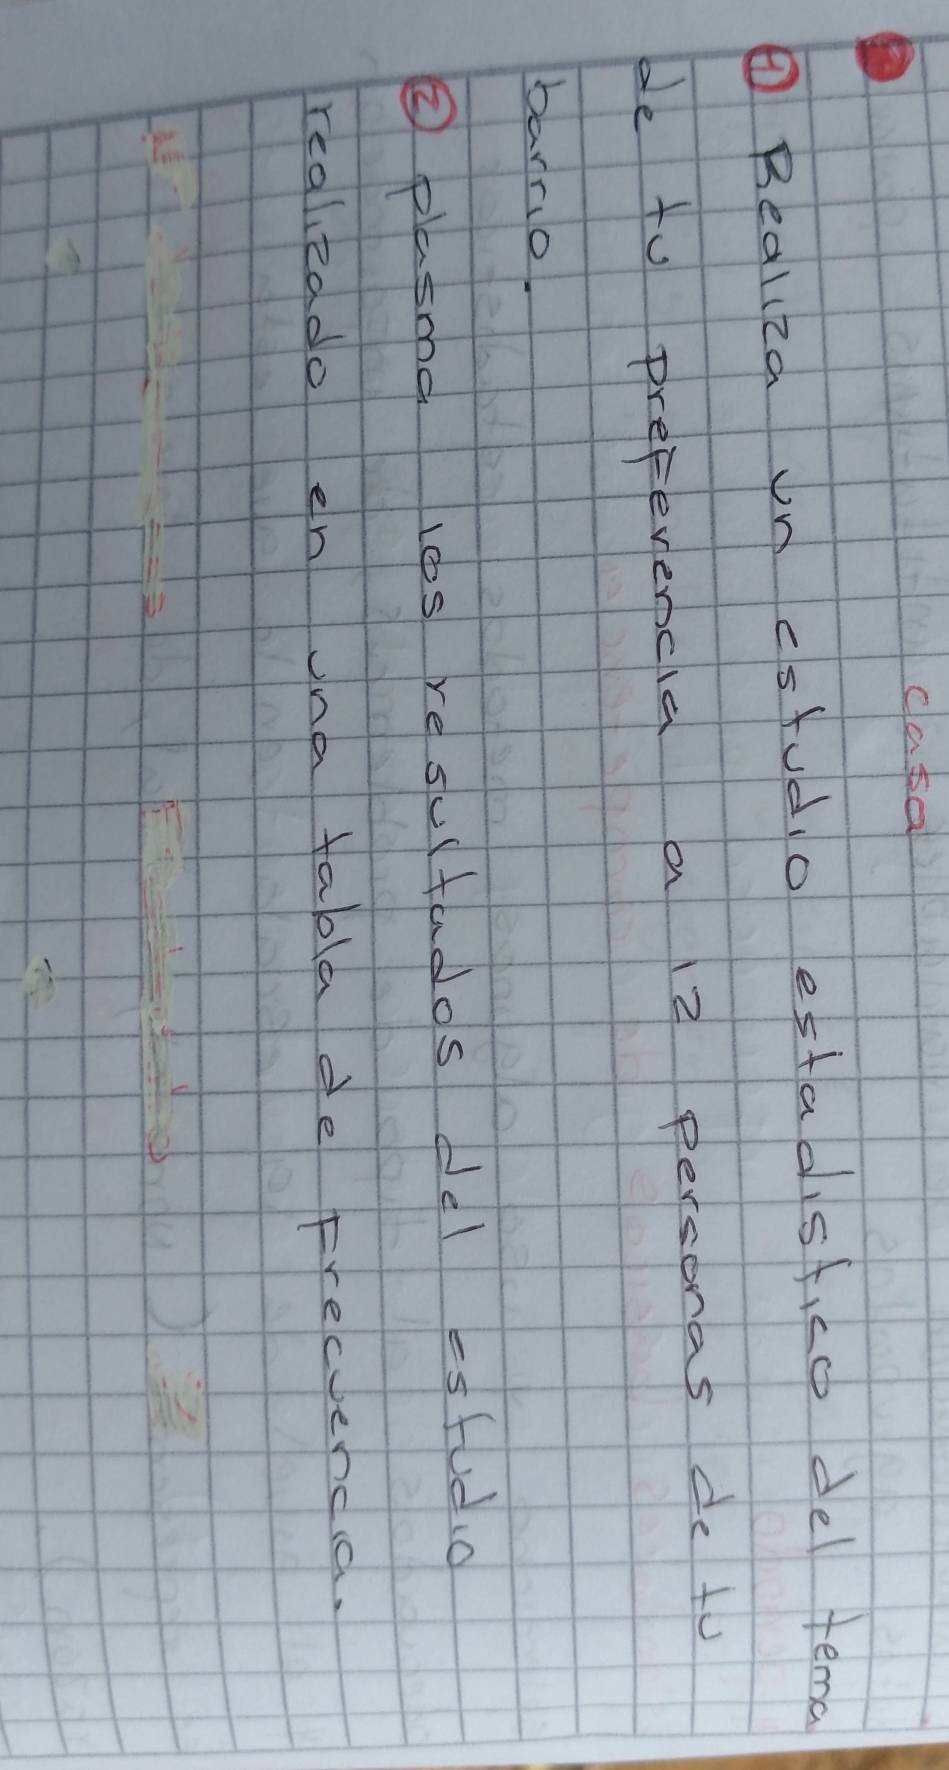 casa
① Realiza un estudio estadistico del tema
de tu preferencia a 12 personas de tu
barrio.
② plasma los resultados del estudio
realizado en una tabla de frecuencia.